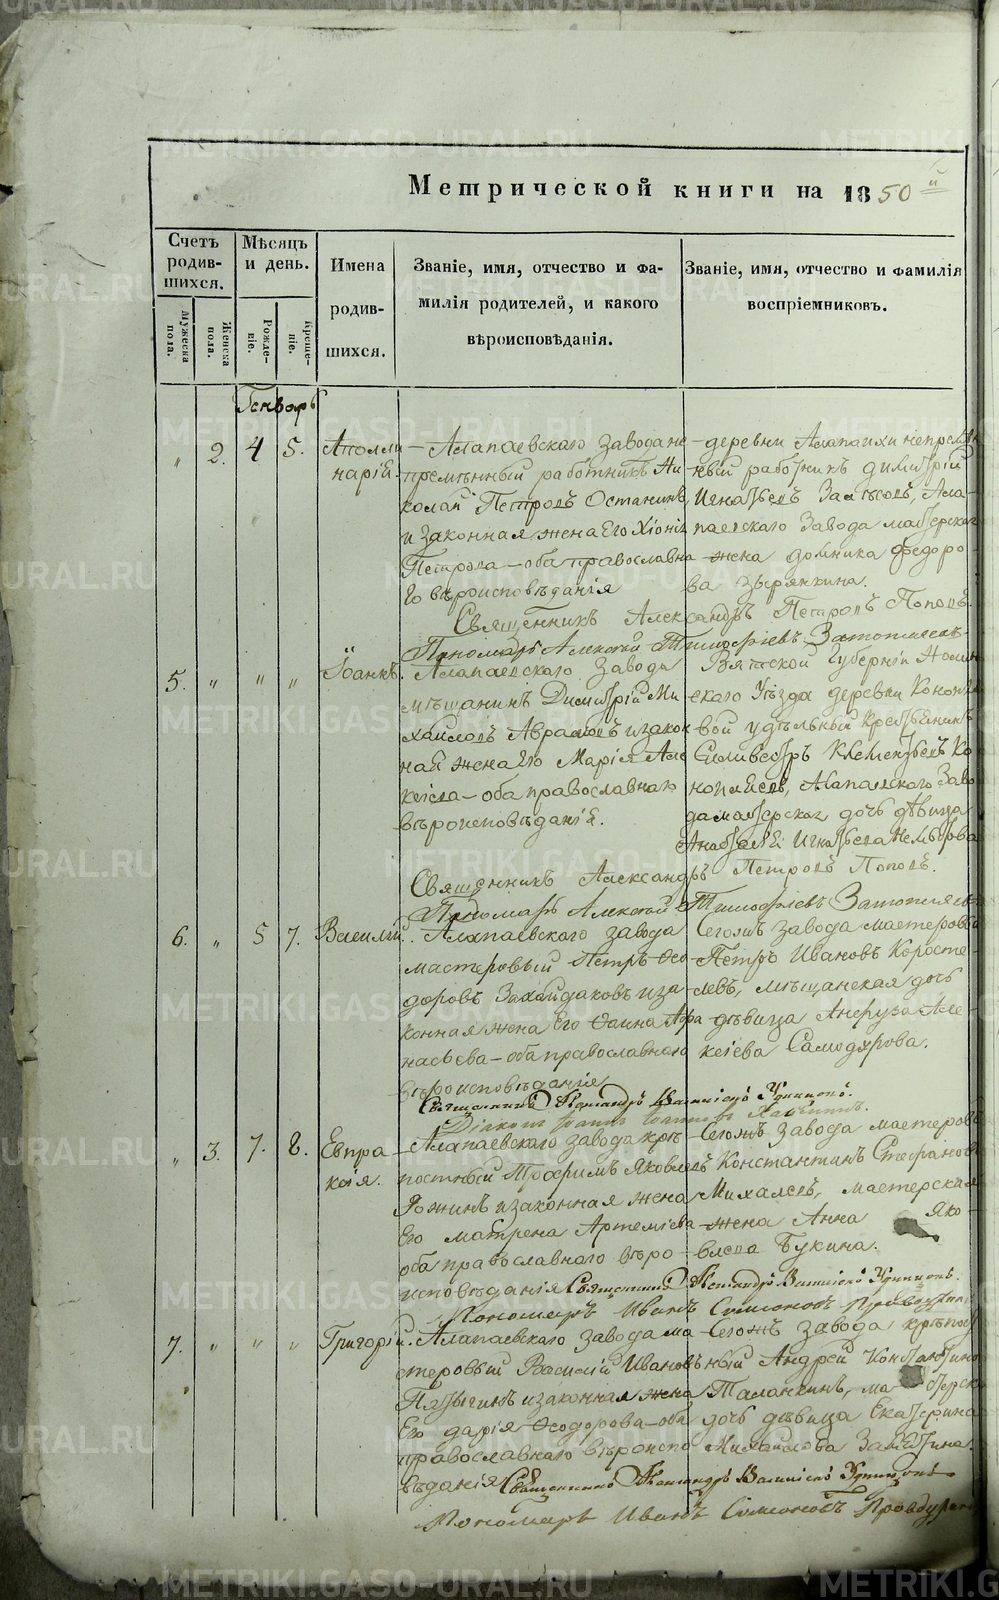 Метрической книги на 1850й
Счетъ родив-шихся.
Мѣсяцъ и день.
Имена родив-шихся.
Званіе, имя, отчество и фа-
милія родителей, и какого
вѣроисповѣданія.
Званіе, имя, отчество и фамилія
воспріемниковъ.
Мужеска пола.
Женска пола.
Рожде-ніе.
Креще-ніе.
Генварь
„ 2. 4 5.
Аполли
нарія.
– Алапаевскаго завода не
премѣнный работникъ Ни
колай Петровъ Останинъ,
и законная жена Его Хіонія
Петрова – оба православна
го вѣроисповѣданія
– деревни Алапаихи непремѣн
ный работникъ димитрій
Игнатьевъ Заплѣсовъ, Ала
паевскаго Завода мастерская
жена домника федоро
ва зырянкина.
Священникъ Александръ Петровъ Поповъ.
Пономарь Алексѣй Тимофѣевъ
5. „ „ „
Іоаннъ.
Алапаевскаго Завода
мѣщанинъ Димитрій Ми
хайловъ Аврамовъ и закон
ная жена Его Марія Але
ксіева – оба православнаго
вѣроисповѣданія.
Вятской Губерніи Нолин
скаго Уѣзда деревни
вой удѣльный крестьянинъ
Сильвестръ Клементьевъ Ко
Алапаевскаго Заво
да мастерская дочь дѣвица
Анастасія Игнатьева
Священникъ Александръ Петровъ Поповъ.
Пономарь Алексѣй Тимофѣевъ
6. „ 5 7.
Василій.
Алапаевскаго завода
мастеровый Петръ Ѳео
доровъ Захайдаковъ и за
конная жена Его Ѳаина Афа
насьева – оба православнаго
вѣроисповѣданіе
Сегожъ завода мастеровый
– Петръ Ивановъ Коросте
левъ, мѣщанская дочь
– дѣвица Анфуза Але
ксіева Самодурова.
Священникъ Александръ
Діаконъ Іоаннъ
„ 3. 7. 8.
Евпра
ксія.
– Алапаевскаго завода крѣ
постный Трофимъ Яковлевъ
Рожинъ и законная жена
Его матрена Артеміева
оба православнаго вѣро
исповѣданія
– Сегожъ Завода мастеров
Константинъ Стефановъ
Михалевъ, мастерская
– жена Анна Яко
влева Букина.
Священникъ Александръ
Пономарь Иванъ Симеоновъ
7. „ „ „
Григорій.
Алапаевскаго завода ма
стеровый Василій Ивановъ
Пятыгинъ и законная жена
Его дарія Ѳеодорова – оба
православнаго вѣроиспо
вѣданія
– Сегожъ завода крѣпост
ный Андрей Константино
Таланкинъ, мастерск
дочь дѣвица Екатерина
Михайлова
Священникъ Александръ
Пономарь Иванъ Симеоновъ
METRIKI.GASO-URAL.RU